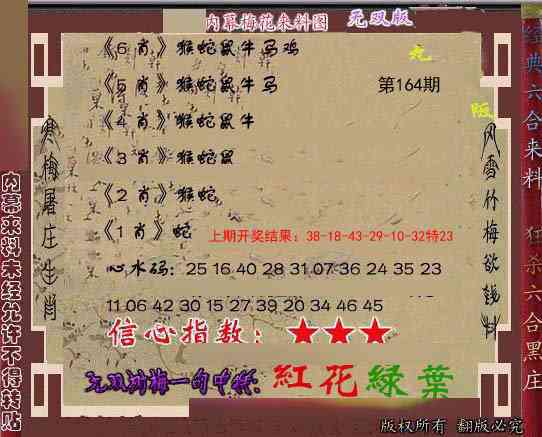 内幕梅花来料图 无双版
《6 肖》猴蛇鼠牛马鸡
《5 肖》猴蛇鼠牛马 第164期
《4 肖》猴蛇鼠牛
《3 肖》猴蛇鼠
《2 肖》猴蛇
《1 肖》蛇
上期开奖结果：38-18-43-29-10-32特23
心水码：25 16 40 28 31 07 36 24 35 23
11 06 42 30 15 27 39 20 34 46 45
信心指数：★★★
一句中特：紅花緑葉
版权所有 翻版必究
寒梅屠庄生肖
风雪竹梅欲钱料
内幕来料未经允许不得转贴
经典六合来料 狂杀六合黑庄